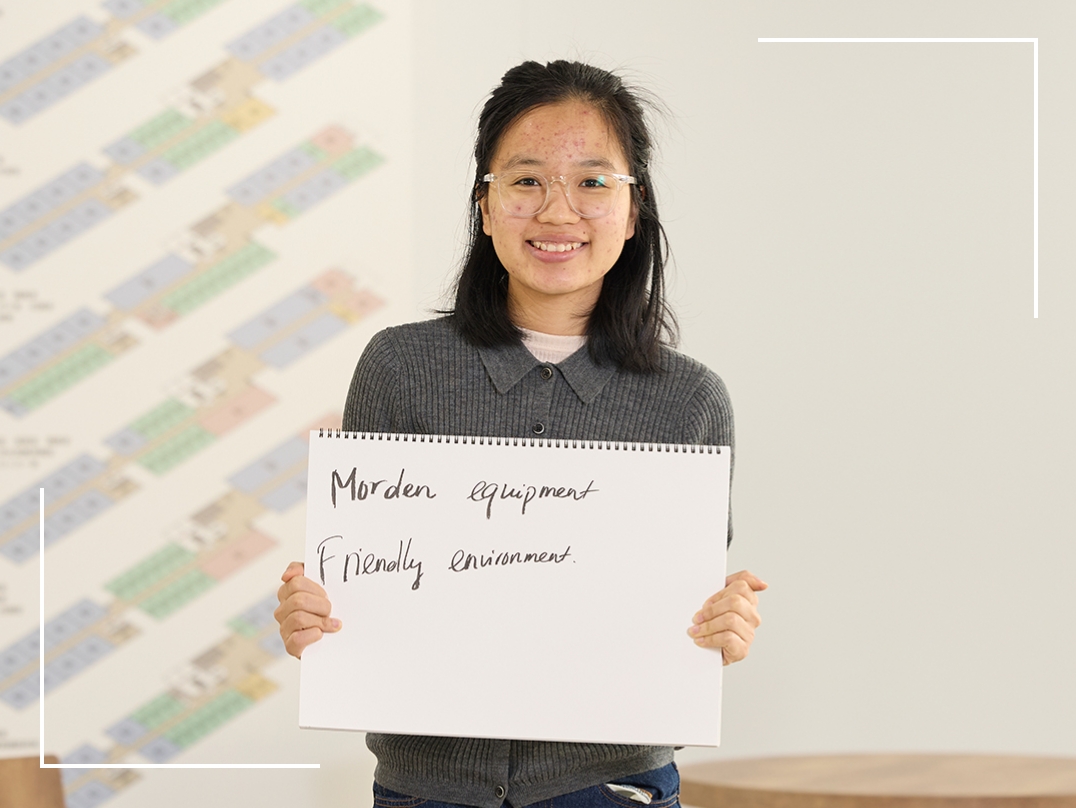 Morden equipment
Friendly environment.